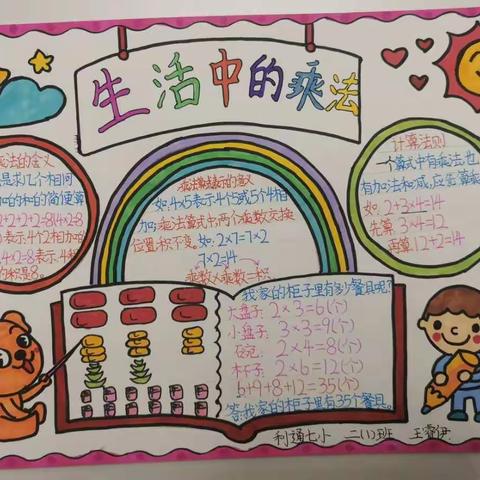 生活中的乘法
乘法的含义
是求几个相同
加的和的简便算
2+2+2+2=8 4×2=8
表示4个2相加的
4×2=8表示.4
的积是8。
乘法算式表示的含义
如:4×5表示4个5或5个4相
加;乘法算式中,两个乘数交换
位置,积不变。如:2×7=7×2
7×2=14
乘数×乘数=积
计算法则
一个算式中有乘法,也
有加法和减,应先算乘
如:2+3×4=14
先算:3×4=12
再算12+2=14
我家的柜子里有多少餐具呢?
大盘子:2×3=6(个)
小盘子:3×3=9(个)
碗:2×4=8(个)
杯子:2×6=12(个)
6+9+8+12=35(个)
答:我家的柜子里有35个餐具。
利通七小 二(1)班 王睿伊